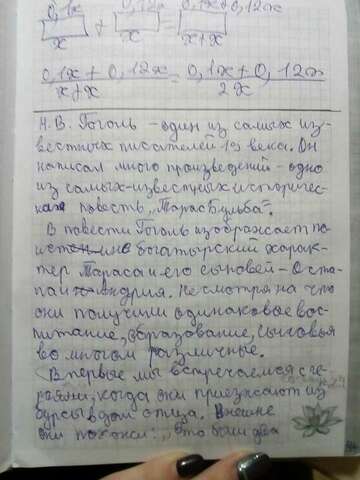 0,1х + 0,12х = 0,1х+0,12х
х х х+х
0,1х + 0,12х = 0,1х+0,12х
х+х 2х
Н.В. Гоголь - один из самых из-
вестных писателей 19 века. Он
написал много произведений - одно
из самых известных историчес-
кая повесть „Тарас Бульба".
В повести Гоголь изображает по
истине богатырский харак-
тер Тараса и его сыновей - Оста-
па и Андрия. Не смотря на что
они получили одинаковое вос-
питание, образование, сыновья
во многом различные.
Впервые мы встречаемся с ге-
роями, когда они приезжают из
бурсы в дом отца. Внешне
они похожи: „Это были два